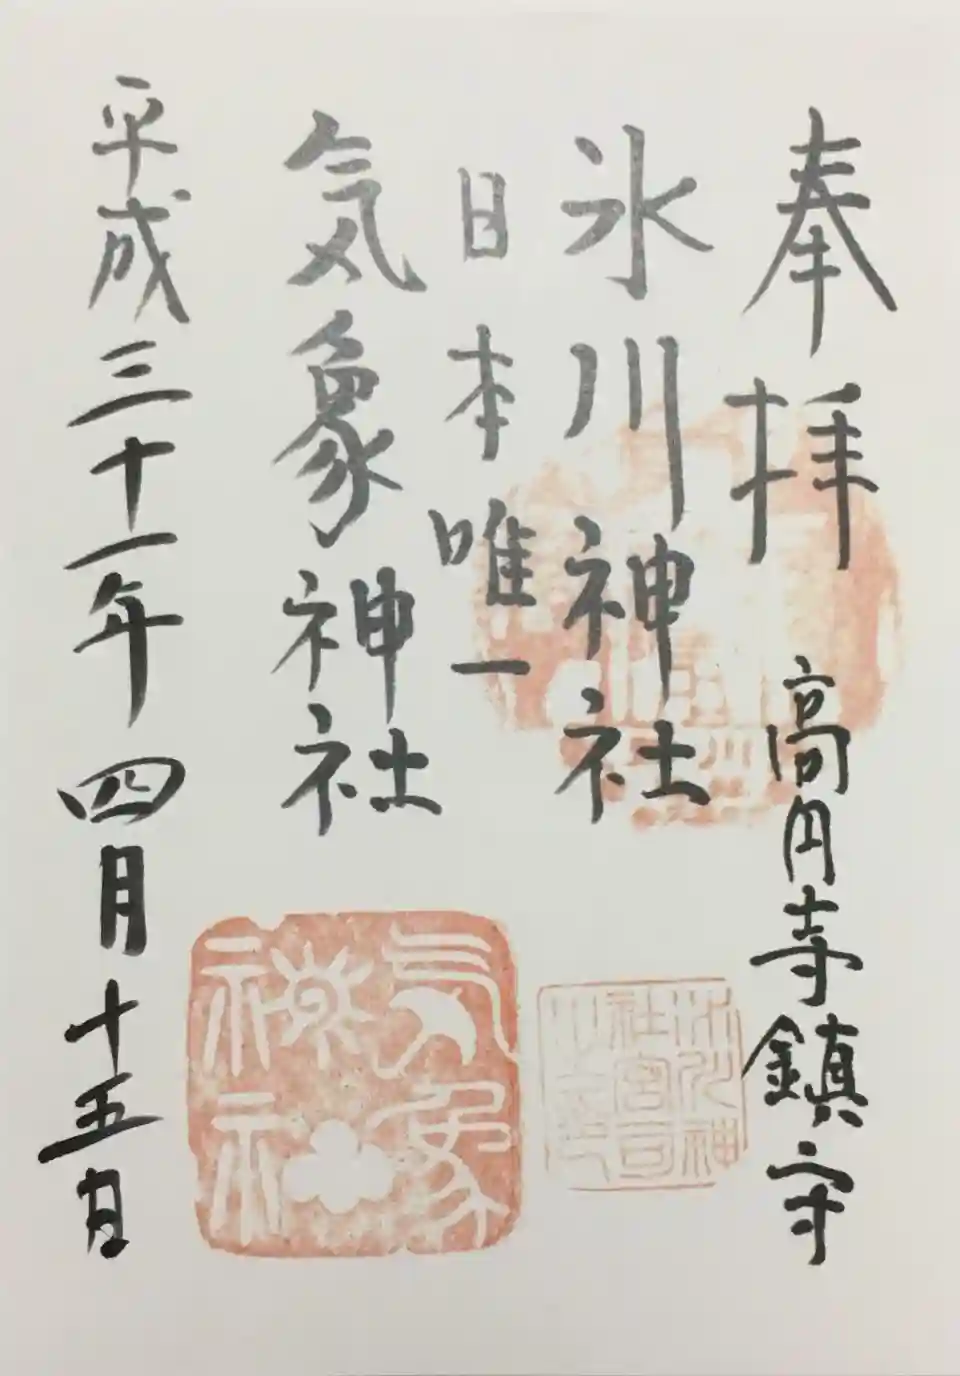 奉拝
高円寺鎮守
氷川神社
日本唯一
気象神社
平成三十一年四月十五日
気象
神社